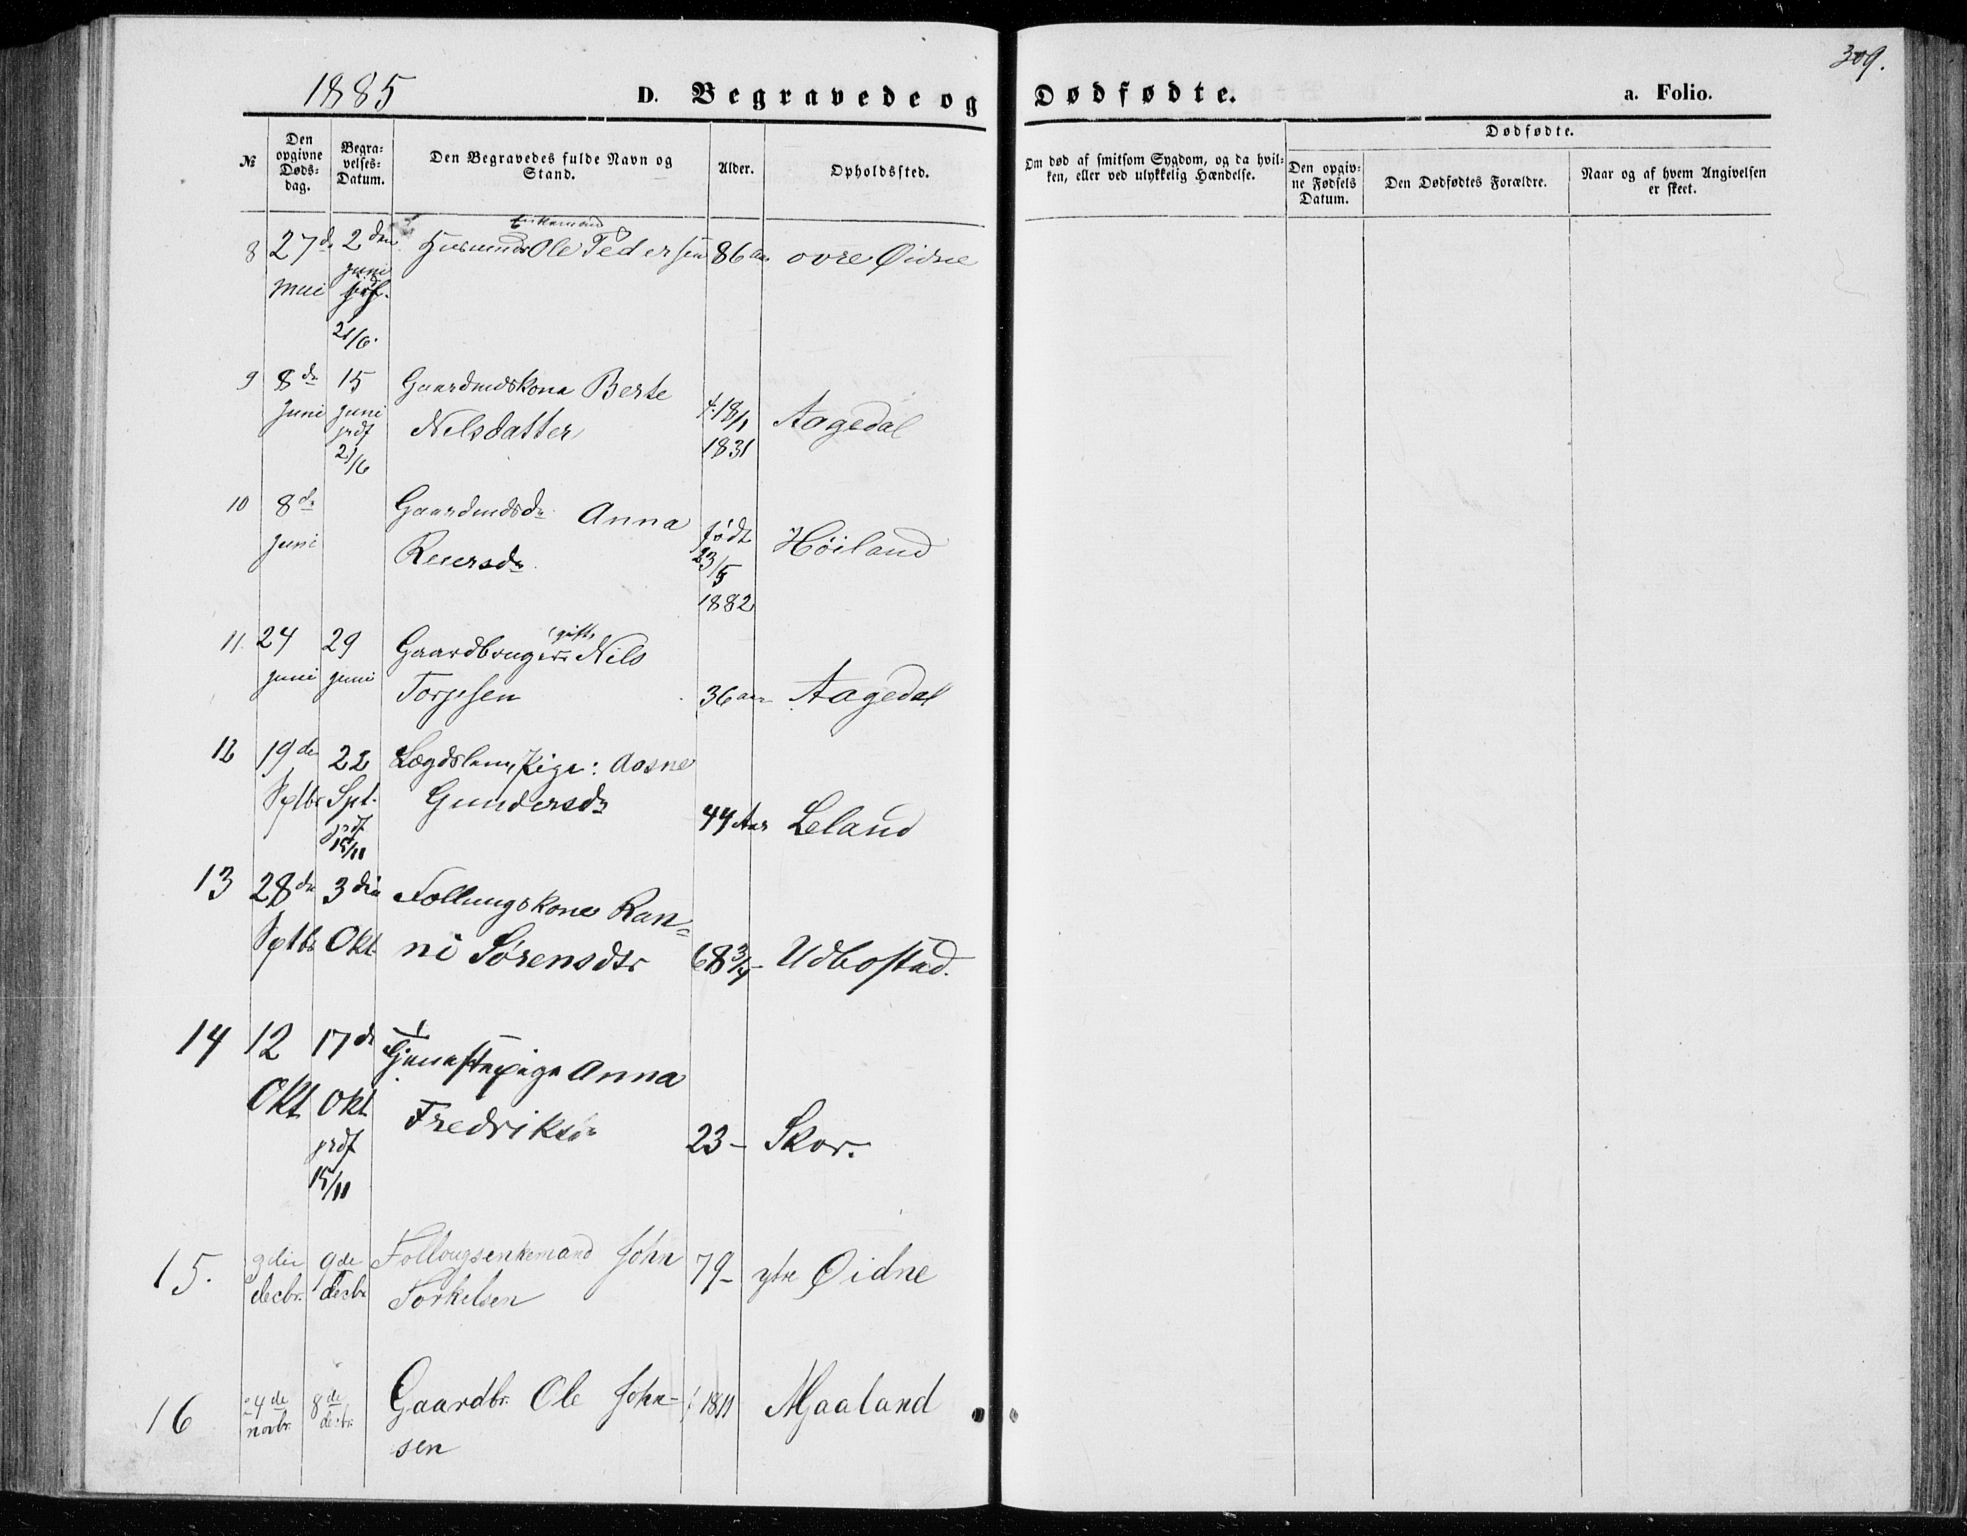 309.
1885
D. Begravede og Dødfødte.
a. Folio.
№
Den opgivne Dødsdag.
Begravelses-Datum.
Den Begravedes fulde Navn og Stand.
Alder.
Opholdssted.
Om død af smitsom Sygdom, og da hvilken, eller ved ulykkelig Hændelse.
Dødfødte.
Den opgivne Fødsels Datum.
Den Dødfødtes Forældre.
Naar og af hvem Angivelsen er skeet.
Enkemand
8 27de 2den Ole Pedersen 86 aar ovre Øidne
Mai juni
21/6.
9 8de 15 Gaardmdskone Berte
Juni juni Nilsdatter f. 18/1 Aagedal
prdf 1831
21/6
10 8de Gaardmdsdr Anna født Høiland
juni Reiersdr 23/5
1882
(gift)
11. 24 29 Gaardbruger Nils
juni juni Torjesen 36 aar Aagedal
12 19de 22 Lægdslem, Pige: Aasne
Sptbr Spt. Gundersdr 44 Aar Leland
prdf
15/11
13 28de 3die Follungskone Ran=
Sptbr Okt ni Sørensdtr 68 3/4 - Udbostad.
14 12 17de Tjenestepige Anna
Okt Okt Fredriksdr 23 - Skor.
prdf
15/11
15. 3die 9de Follougsenkemand John 79 - ytre Øidne
decbr. decbr Torkelsen
16 24de 8de Gaardbr. Ole John- f. 1811 Mjaaland
novbr. decbr. sen